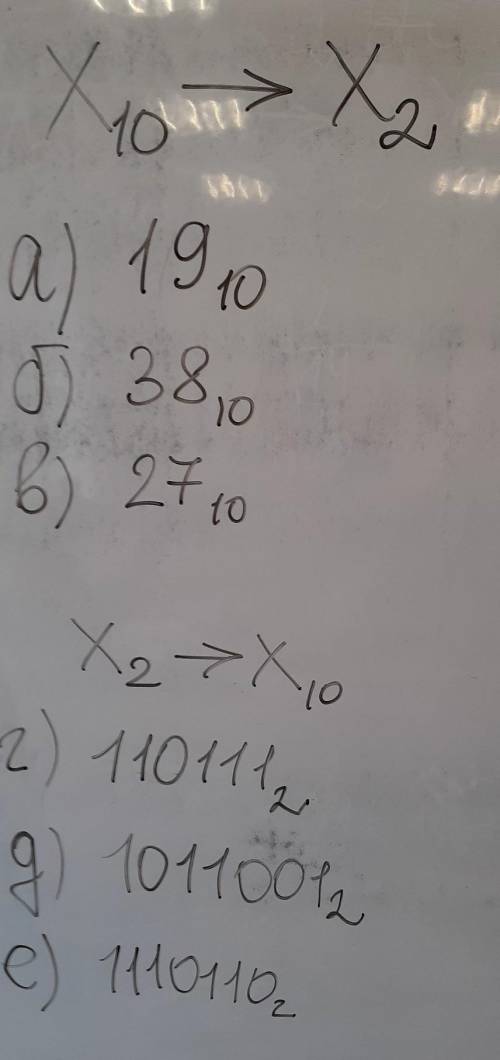 X₁₀ → X₂
а) 19₁₀
б) 38₁₀
в) 27₁₀
X₂ → X₁₀
г) 110111₂
д) 1011001₂
е) 1110110₂